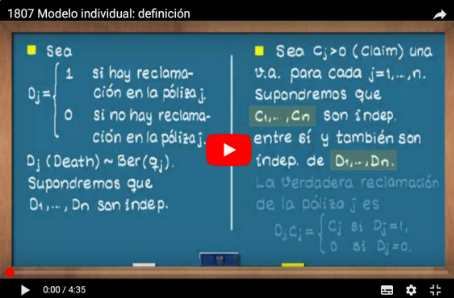 1807 Modelo individual: definición
Sea
Dj = { 1 si hay reclama-
ción en la póliza j.
0 si no hay reclama-
ción en la póliza j.
Dj (Death) ~ Ber(qj).
Supondremos que
D1,..., Dn son indep.
Sea Cj>0 (Claim) una
v.a. para cada j=1,...,n.
Supondremos que
C1,..., Cn son indep.
entre sí y también son
indep. de D1,..., Dn.
La verdadera reclamación
de la póliza j es
DjCj = { Cj si Dj=1,
0 si Dj=0.
0:00 / 4:35